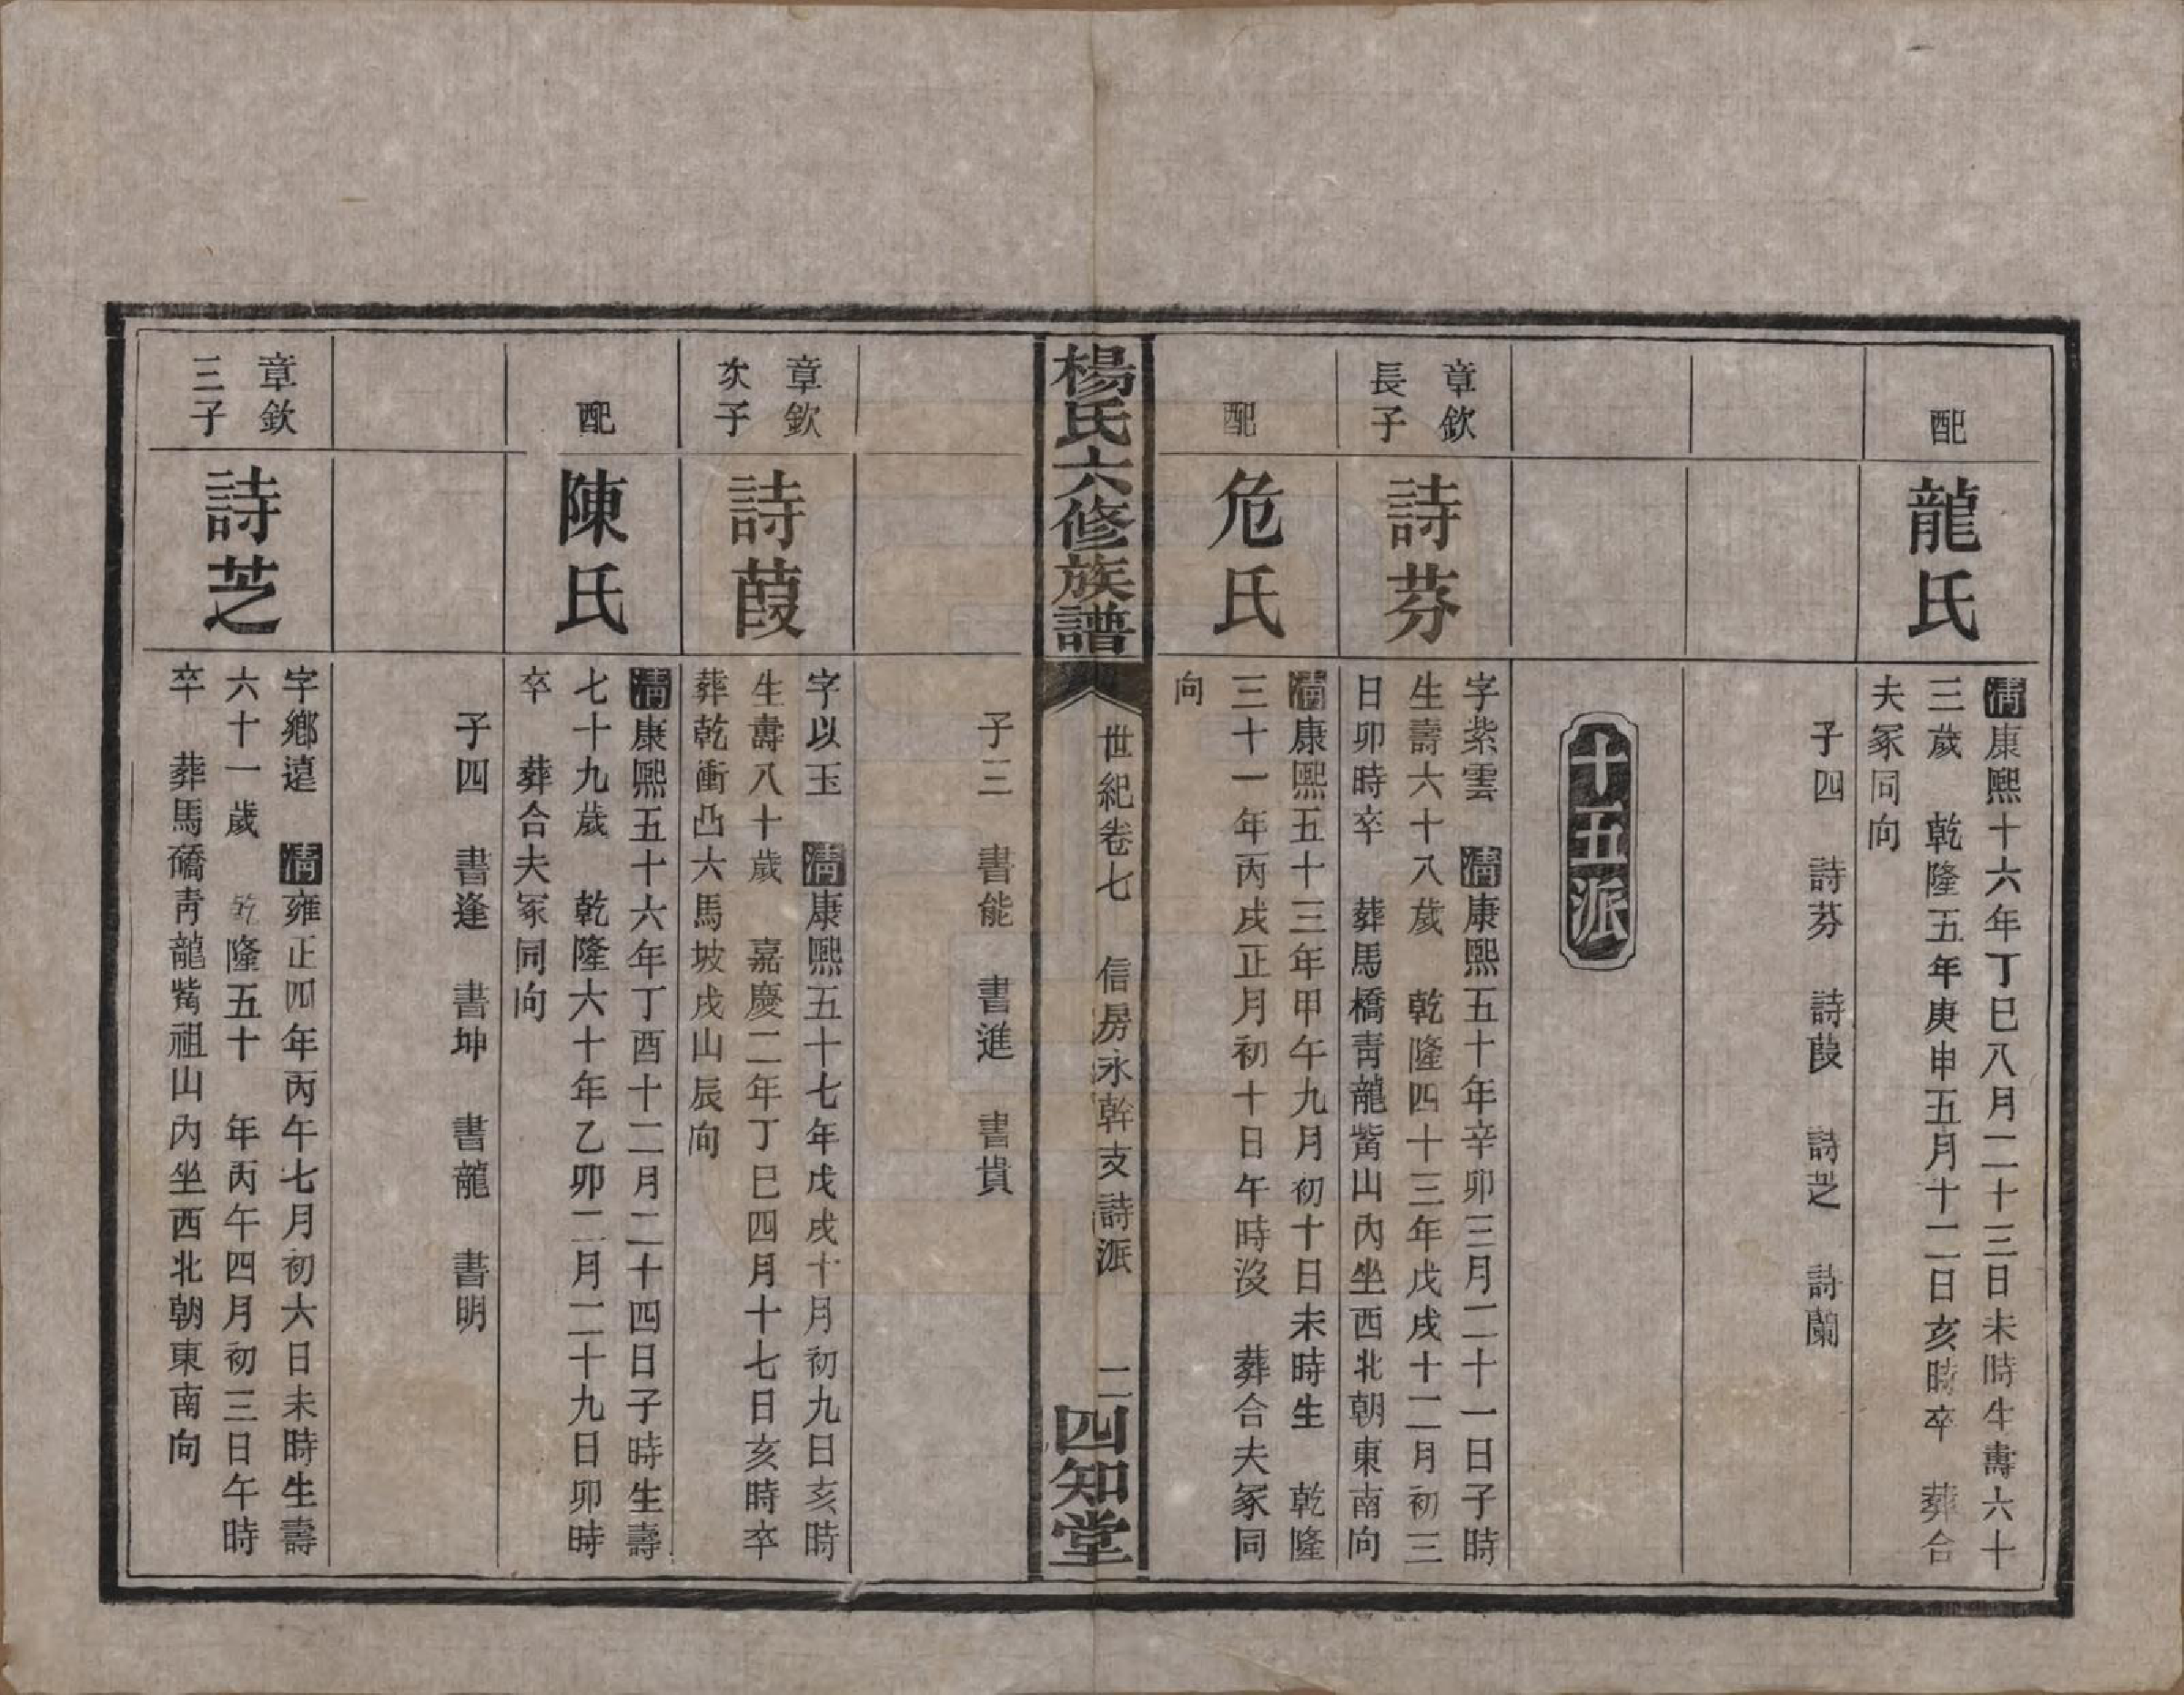 配
龍氏
清康熙十六年丁巳八月二十三日未時生壽六十
三歲　乾隆五年庚申五月十二日亥時卒　葬合
夫冢同向
子四　詩芬　詩葭　詩芝　詩蘭
十五派
章欽
長子
詩芬
字紫雲　清康熙五十年辛卯三月二十一日子時
生壽六十八歲　乾隆四十三年戊戌十二月初三
日卯時卒　葬馬橋青龍嘴山內坐西北朝東南向
配
危氏
清康熙五十三年甲午九月初十日未時生　乾隆
三十一年丙戌正月初十日午時沒　葬合夫冢同
向
楊氏六修族譜
世紀卷七　信房永幹支詩派　二
四知堂
子三　書能　書進　書貴
章欽
次子
詩葭
字以玉　清康熙五十七年戊戌十月初九日亥時
生壽八十歲　嘉慶二年丁巳四月十七日亥時卒
葬乾衝凸六馬坡戌山辰向
配
陳氏
清康熙五十六年丁酉十二月二十四日子時生壽
七十九歲　乾隆六十年乙卯二月二十九日卯時
卒　葬合夫冢同向
子四　書逢　書坤　書龍　書明
章欽
三子
詩芝
字鄉遠　清雍正四年丙午七月初六日未時生壽
六十一歲　乾隆五十　年丙午四月初三日午時
卒　葬馬礄青龍嘴祖山內坐西北朝東南向